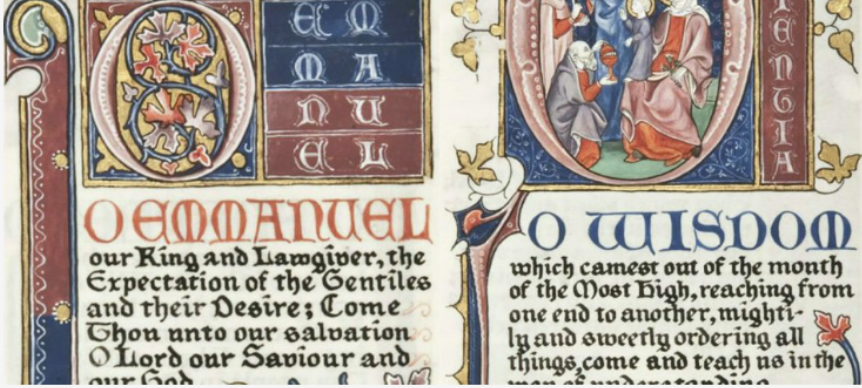 E M
M A
N U
E L
O EMMANUEL
our King and Lawgiver, the
Expectation of the Gentiles
and their Desire; Come
Thou unto our salvation
O Lord our Saviour and
our God
I
E
N
T
I
A
O WISDOM
which camest out of the mouth
of the Most High, reaching from
one end to another, mighti-
ly and sweetly ordering all
things, come and teach us in the
way of understanding